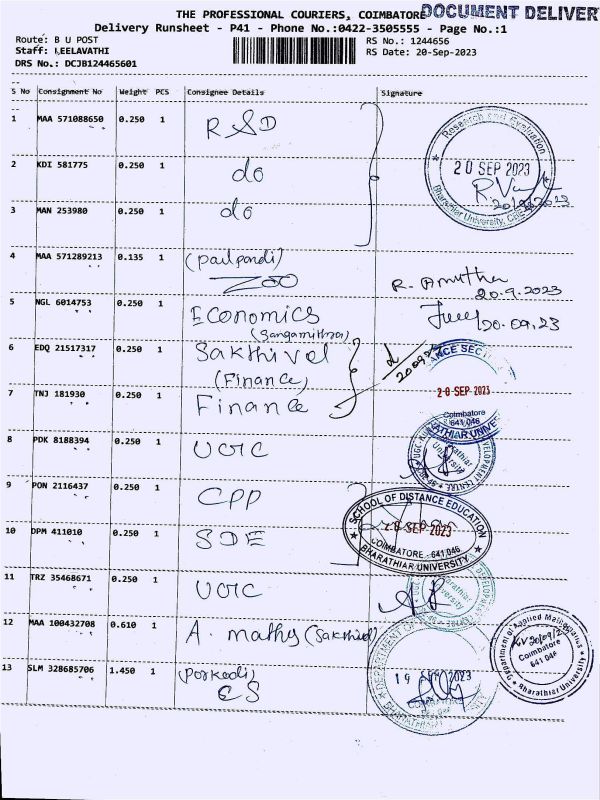 THE PROFESSIONAL COURIERS, COIMBATORE
DOCUMENT DELIVER
Delivery Runsheet - P41 - Phone No.:0422-3505555 - Page No.:1
Route: B U POST
RS No.: 1244656
Staff: LEELAVATHI
RS Date: 20-Sep-2023
DRS No.: DCJB124465601
S No Consignment No Weight PCS Consignee Details Signature
1 MAA 571088650 0.250 1 R&D
Research and Evaluation
20 SEP 2023
20/9/2023
Bharathiar University, CBE
2 KDI 581775 0.250 1 do
3 MAN 253980 0.250 1 do
4 MAA 571289213 0.135 1 (Palpandi)
ZOO
R. Amutha
20.9.2023
5 NGL 6014753 0.250 1 Economics
(Sangamithra)
20.09.23
6 EDQ 21517317 0.250 1 Sakthivel
(Finance)
20 SEP 2023
7 TNJ 181930 0.250 1 Finance
Coimbatore
641 046
8 PDK 8188394 0.250 1 UGC
9 PON 2116437 0.250 1 CPP
SCHOOL OF DISTANCE EDUCATION
SEP 2023
COIMBATORE - 641 046
BHARATHIAR UNIVERSITY
10 DPM 411010 0.250 1 SDE
11 TRZ 35468671 0.250 1 UGC
12 MAA 100432708 0.610 1 A. maths (Sakthivel)
Department of Applied Mathematics
20/09/2
Coimbatore
641 046
Bharathiar University
13 SLM 328685706 1.450 1 (Porkodi)
CS
19 SEP 2023